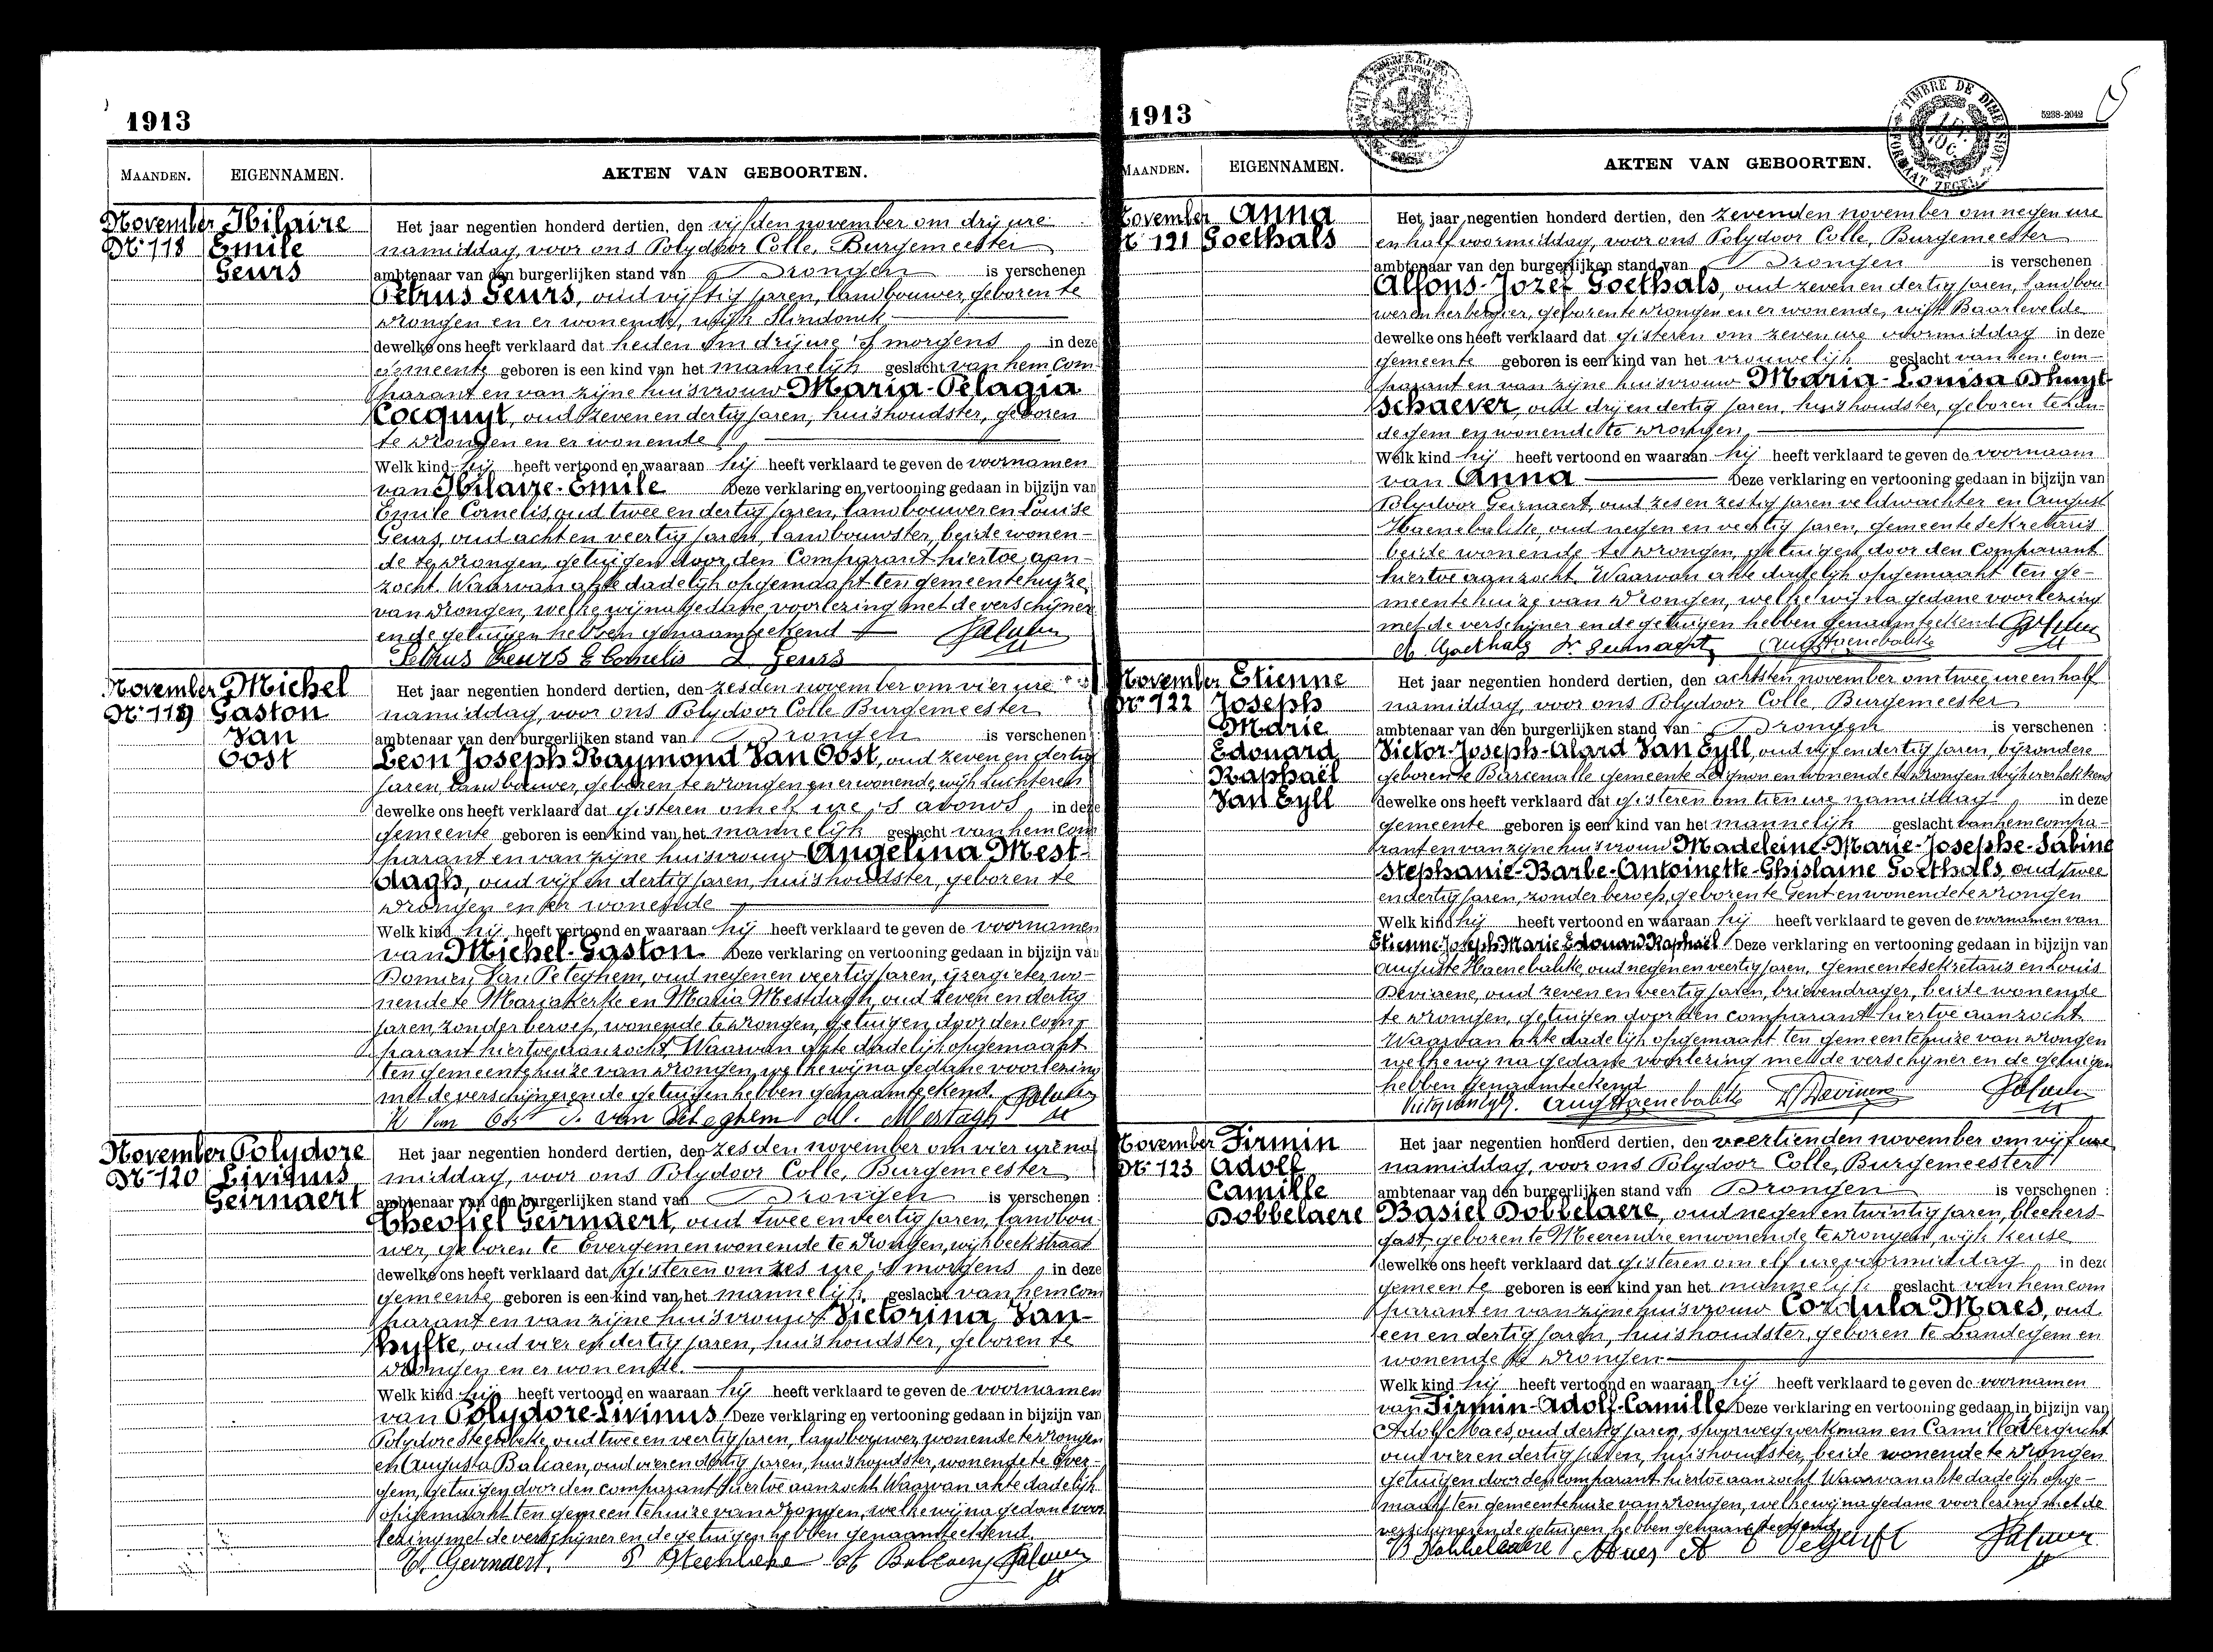 1913
MAANDEN. EIGENNAMEN. AKTEN VAN GEBOORTEN.
November Hilaire
Nr 118 Emile
Geurs
Het jaar negentien honderd dertien, den vijfden november om drij ure
namiddag, voor ons Polydoor Colle, Burgemeester
ambtenaar van den burgerlijken stand van Drongen is verschenen
Petrus Geurs, oud vijftig jaren, landbouwer, geboren te
Drongen en er wonende, wijk Slindonck
dewelke ons heeft verklaard dat heden om drij ure 's morgens, in deze
gemeente geboren is een kind van het mannelijk geslacht van hem com-
parant en van zijne huisvrouw Maria-Pelagia
Cocquyt, oud zeven en dertig jaren, huishoudster, geboren
te Drongen en er wonende
Welk kind hij heeft vertoond en waaraan hij heeft verklaard te geven de voornamen
van Hilaire-Emile Deze verklaring en vertooning gedaan in bijzijn van
Emile Cornelis, oud twee en dertig jaren, landbouwer en Louise
Geurs, oud acht en veertig jaren, landbouwster, beide wonen-
de te Drongen, getuigen door den Comparant hiertoe aan-
zocht. Waarvan akte dadelijk opgemaakt ten gemeentehuize
van Drongen, welke wij na gedane voorlezing met de verschijner
en de getuigen hebben genaamteekend
Petrus Geurs E Cornelis L Geurs
November Michel
Nr 119 Gaston
Van
Oost
Het jaar negentien honderd dertien, den zesden november om vier ure
namiddag, voor ons Polydoor Colle Burgemeester
ambtenaar van den burgerlijken stand van Drongen is verschenen :
Leon Joseph Raymond Van Oost, oud zeven en dertig
jaren, landbouwer, geboren te Drongen en er wonende, wijk Luchteren
dewelke ons heeft verklaard dat gisteren om elf ure 's avonds, in deze
gemeente geboren is een kind van het mannelijk geslacht van hem com
parant en van zijne huisvrouw Angelina Mest-
dagh, oud vijf en dertig jaren, huishoudster, geboren te
Drongen en er wonende
Welk kind hij heeft vertoond en waaraan hij heeft verklaard te geven de voornamen
van Michel-Gaston Deze verklaring en vertooning gedaan in bijzijn van
Van Peteghem, oud negen en veertig jaren, ijzergieter, wo-
nende te Mariakerke en Maria Mestdagh, oud zeven en dertig
jaren, zonder beroep, wonende te Drongen, getuigen door den com-
parant hiertoe aanzocht. Waarvan akte dadelijk opgemaakt
ten gemeentehuize van Drongen, welke wij na gedane voorlezing
met de verschijner en de getuigen hebben genaamteekend.
Van Oost D. Van Peteghem M. Mestagh
November Polydore
Nr 120 Livinus
Geirnaert
Het jaar negentien honderd dertien, den zesden november om vier ure na
middag, voor ons Polydoor Colle, Burgemeester
ambtenaar van den burgerlijken stand van Drongen is verschenen :
Theofiel Geirnaert, oud twee en veertig jaren, landbou
wer, geboren te Evergem en wonende te Drongen, wijk beekstraat
dewelke ons heeft verklaard dat gisteren om zes ure 's morgens, in deze
gemeente geboren is een kind van het mannelijk geslacht van hem com
parant en van zijne huisvrouw Victorina Van-
hyfte, oud vier en dertig jaren, huishoudster, geboren te
Drongen en er wonende.
Welk kind hij heeft vertoond en waaraan hij heeft verklaard te geven de voornamen
van Polydore-Livinus Deze verklaring en vertooning gedaan in bijzijn van
Polydore Steenbeke, oud twee en veertig jaren, landbouwer, wonende te Drongen
en Augusta Balcaen, oud vier en dertig jaren, huishoudster, wonende te Ever-
gem, getuigen door den comparant hiertoe aanzocht. Waarvan akte dadelijk
opgemaakt ten gemeentehuize van Drongen, welke wij na gedane voor
lezing met de verschijner en de getuigen hebben genaamteekend.
Geirnaert. P Steenbeke Balcaen
1913
5238-2042
TIMBRE DE DIMENSION
FORMAAT ZEGEL
MAANDEN. EIGENNAMEN. AKTEN VAN GEBOORTEN.
November Anna
Nr 121 Goethals
Het jaar negentien honderd dertien, den zevenden november om negen ure
en half voormiddag, voor ons Polydoor Colle, Burgemeester
ambtenaar van den burgerlijken stand van Drongen is verschenen
Alfons-Jozef Goethals, oud zeven en dertig jaren, landbou
wer en herbergier, geboren te Drongen en er wonende, wijk Baarlevelde
dewelke ons heeft verklaard dat gisteren om zeven ure voormiddag in deze
gemeente geboren is een kind van het vrouwelijk geslacht van hem com-
parant en van zijne huisvrouw Maria-Louisa Dhuyt-
schaever, oud drij en dertig jaren, huishoudster, geboren te Lan-
degem en wonende te Drongen,
Welk kind hij heeft vertoond en waaraan hij heeft verklaard te geven de voornaam
van Anna Deze verklaring en vertooning gedaan in bijzijn van
Polydoor Geirnaert, oud zes en zestig jaren veldwachter en August
Haenebalke, oud negen en veertig jaren, gemeente sekretaris
beide wonende te Drongen, getuigen door den Comparant
hiertoe aanzocht. Waarvan akte dadelijk opgemaakt ten ge-
meentehuize van Drongen, welke wij na gedane voorlezing
met de verschijner en de getuigen hebben genaamteekend
A. Goethals Aug Haenebalke
November Etienne
Nr 122 Joseph
Marie
Edouard
Raphaël
Van Eyll
Het jaar negentien honderd dertien, den achtsten november om twee ure en half
namiddag, voor ons Polydoor Colle, Burgemeester
ambtenaar van den burgerlijken stand van Drongen is verschenen :
Victor-Joseph-Alard Van Eyll, oud vijf en dertig jaren, bijzondere
geboren te Barcenalle gemeente Leignon en wonende te Drongen wijk
dewelke ons heeft verklaard dat gisteren om tien ure namiddag, in deze
gemeente geboren is een kind van het mannelijk geslacht van hem compa-
rant en van zijne huisvrouw Madeleine-Marie-Josephe-Sabine
Stephanie-Barbe-Antoinette-Ghislaine Goethals, oud twee
en dertig jaren, zonder beroep, geboren te Gent en wonende te Drongen
Welk kind hij heeft vertoond en waaraan hij heeft verklaard te geven de voornamen van
Etienne-Joseph Marie Edouard Raphaël Deze verklaring en vertooning gedaan in bijzijn van
Auguste Haenebalke, oud negen en veertig jaren, gemeentesekretaris en Louis
Deviaene, oud zeven en veertig jaren, brievendrager, beide wonende
te Drongen, getuigen door den comparant hiertoe aanzocht.
Waarvan akte dadelijk opgemaakt ten gemeentehuize van Drongen
welke wij na gedane voorlezing met de verschijner en de getuigen
hebben genaamteekend
Victor van Eyll. Aug Haenebalke
November Firmin
Nr 123 Adolf
Camille
Dobbelaere
Het jaar negentien honderd dertien, den veertienden november om vijf ure
namiddag, voor ons Polydoor Colle, Burgemeester
ambtenaar van den burgerlijken stand van Drongen is verschenen :
Basiel Dobbelaere, oud negen en twintig jaren, bleekers-
gast, geboren te Meerendre en wonende te Drongen, wijk Keuse
dewelke ons heeft verklaard dat gisteren om elf ure voormiddag, in deze
gemeente geboren is een kind van het mannelijk geslacht van hem com
parant en van zijne huisvrouw Cordula Maes, oud
een en dertig jaren, huishoudster, geboren te Landegem en
wonende te Drongen
Welk kind hij heeft vertoond en waaraan hij heeft verklaard te geven de voornamen
van Firmin-Adolf-Camille Deze verklaring en vertooning gedaan in bijzijn van
Adolf Maes, oud dertig jaren, spoorwegwerkman en Camilla Vergucht
oud vier en dertig jaren, huishoudster, beide wonende te Drongen
getuigen door den comparant hiertoe aanzocht. Waarvan akte dadelijk opge-
maakt ten gemeentehuize van Drongen, welke wij na gedane voorlezing met de
verschijner en de getuigen hebben genaamteekend
B Dobbelaere Maes A